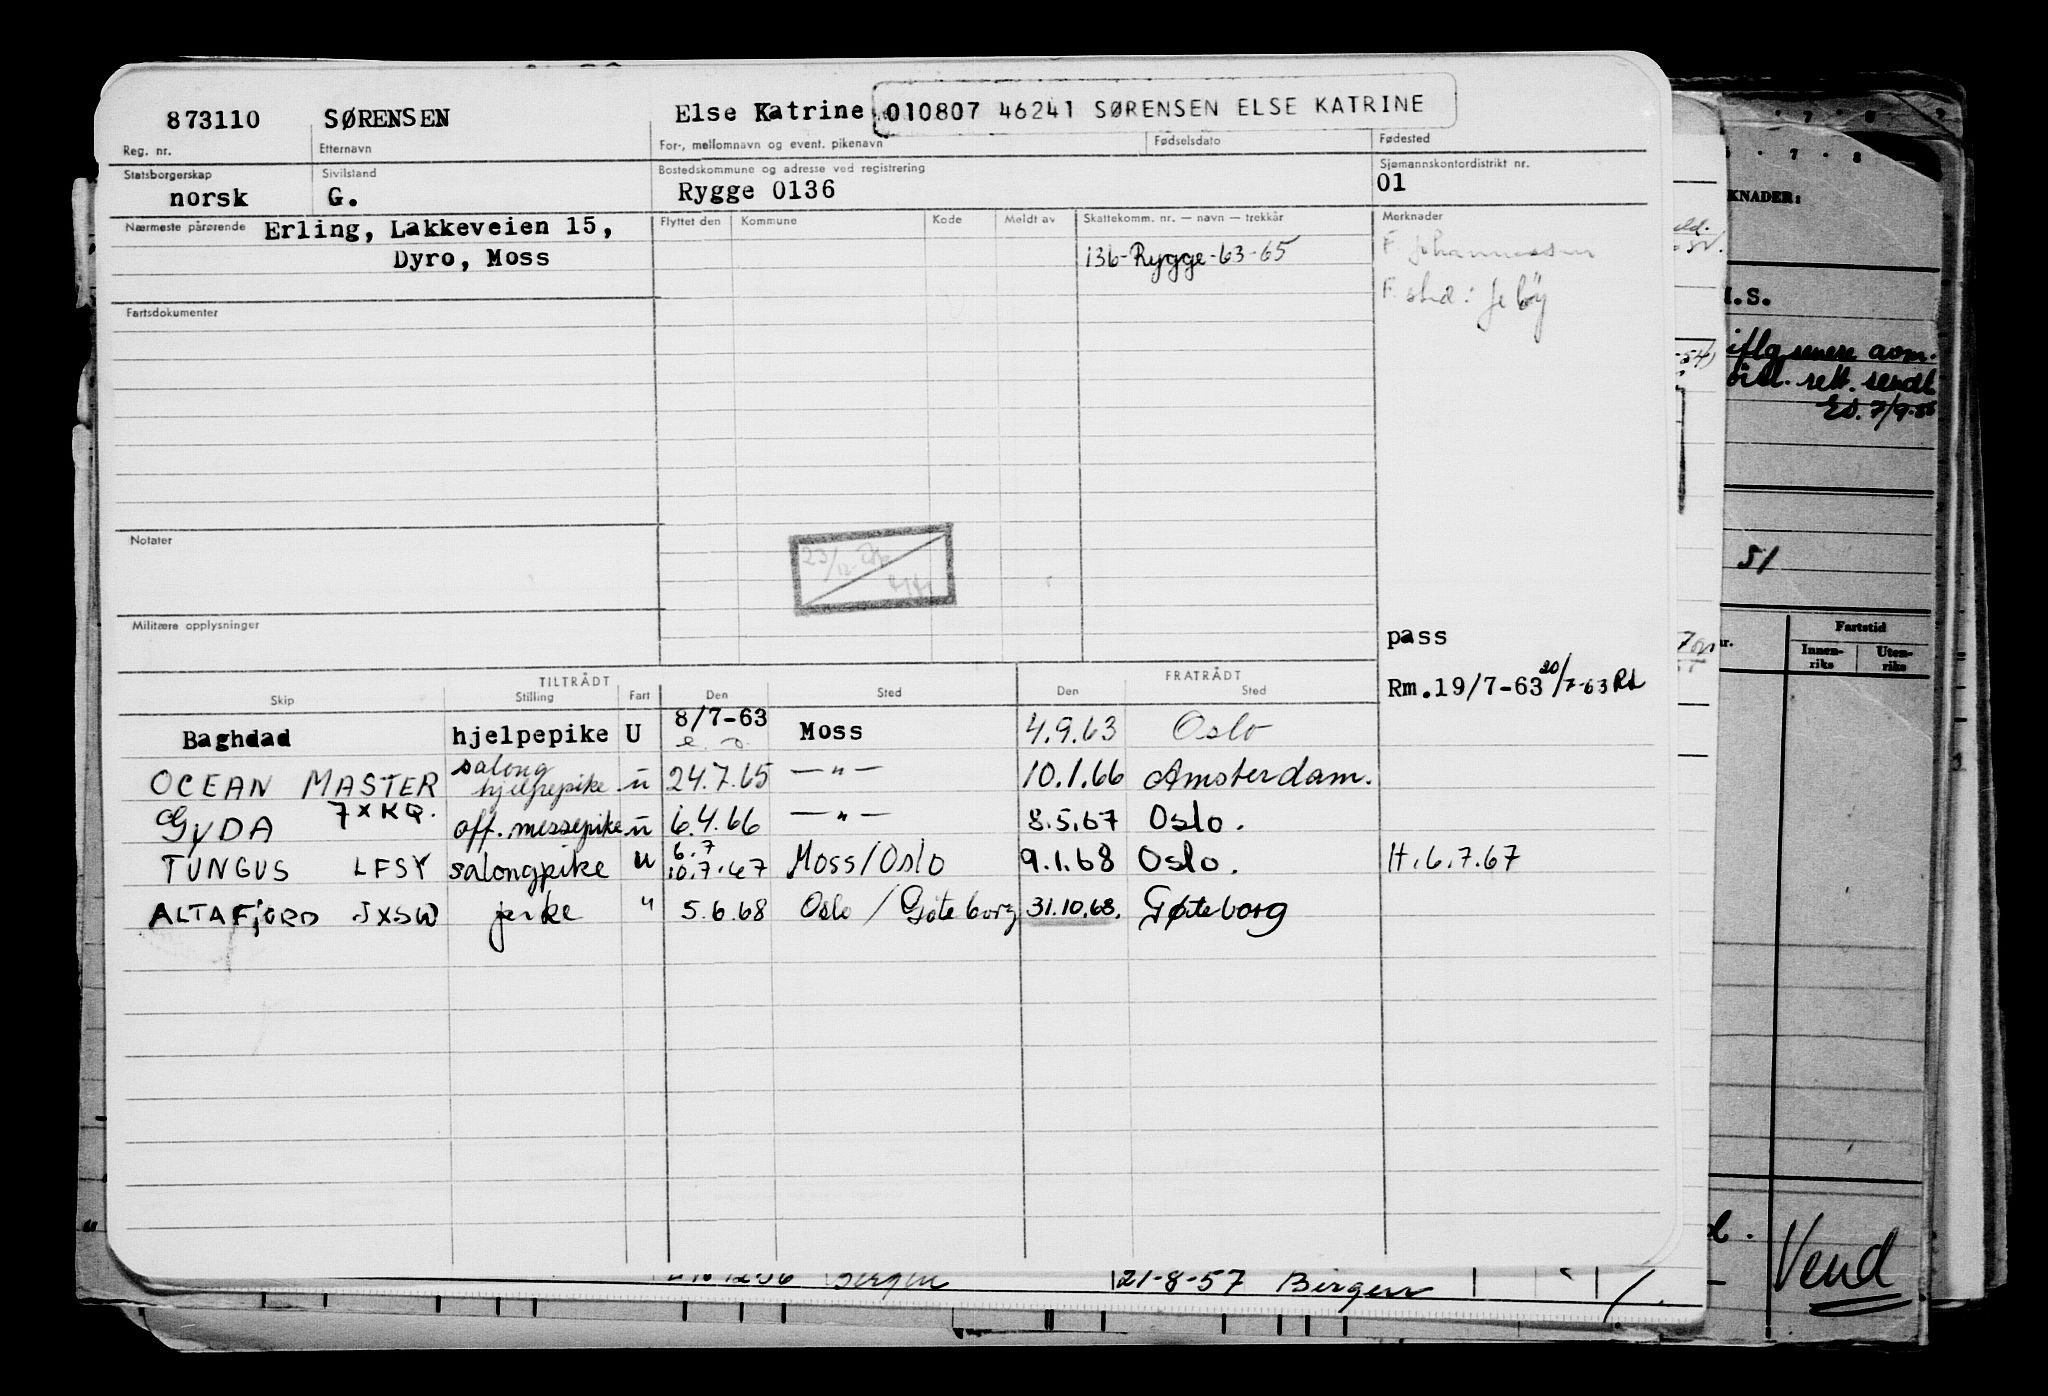 873110 SØRENSEN Else Katrine 010807 46241 SØRENSEN ELSE KATRINE
Reg. nr. Etternavn For-, mellomnavn og event. pikenavn Fødselsdato Fødested
Statsborgerskap Sivilstand Bostedskommune og adresse ved registrering Sjømannskontordistrikt nr.
norsk G. Rygge 0136 01
Nærmeste pårørende Erling, Lakkeveien 15, Flyttet den Kommune Kode Meldt av Skattekomm. nr. — navn — trekkår Merknader
Dyro, Moss 136-Rygge-63-65 F. Johannessen
F. sted: Jeløy
Fartsdokumenter
Notater
23/12
Militære opplysninger
pass
Rm.19/7-63 20/7-63 Rd
TILTRÅDT FRATRÅDT
Skip Stilling Fart Den Sted Den Sted
Baghdad hjelpepike U 8/7-63 Moss 4.9.63 Oslo
OCEAN MASTER salong hjelpepike u 24.7.65 — " — 10.1.66 Amsterdam.
7XKQ.
GYDA off. messepike u 6.4.66 — " — 8.5.67 Oslo.
6.7
TUNGUS LFSY salongpike u 10.7.67 Moss/Oslo 9.1.68 Oslo. H.6.7.67
ALTAFJORD JXSW " 5.6.68 Oslo / Gøteborg 31.10.68. Gøteborg
KNADER:
iflg senere
rett. sendt
7/9-
51
Fartstid
Innen-riks Uten-riks
Vend
Bergen 21-8-57 Bergen